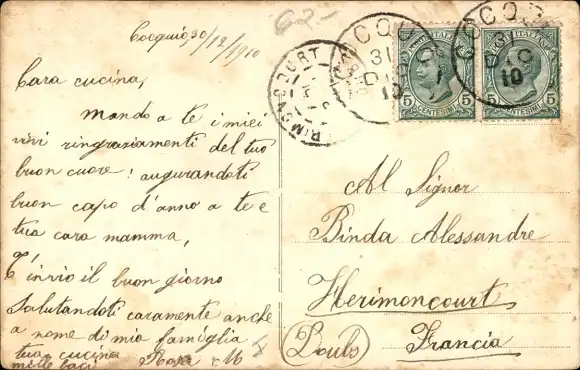 Cocquio, 30/12/1910
Cara cucina,
Mando a te i miei
vivi ringraziamenti del tuo
buon cuore! augurandoti
buon capo d'anno a te e
tua cara mamma,
T'invio il buon giorno
Salutandoti caramente anche
a nome di mia famiglia
tua cucina
mille baci Rosa M
62-
HERIMONCOURT
COCQUIO
31 DIC 10
POSTE ITALIANE
5 CENTESIMI 5
COCQUIO
31 DIC 10
POSTE ITALIANE
5 CENTESIMI 5
Al Signor
Binda Alessandre
Herimoncourt
(Doubs) Francia